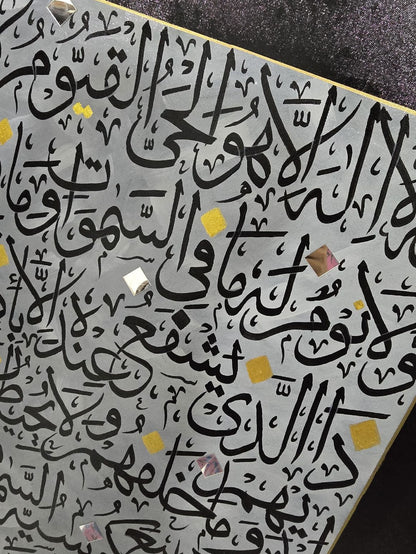 لا اله الا هو الحي القيوم
ولا نوم له ما في السموت وما
ذا الذي يشفع عنده الا
يهم وما خلفهم ولا يحيط